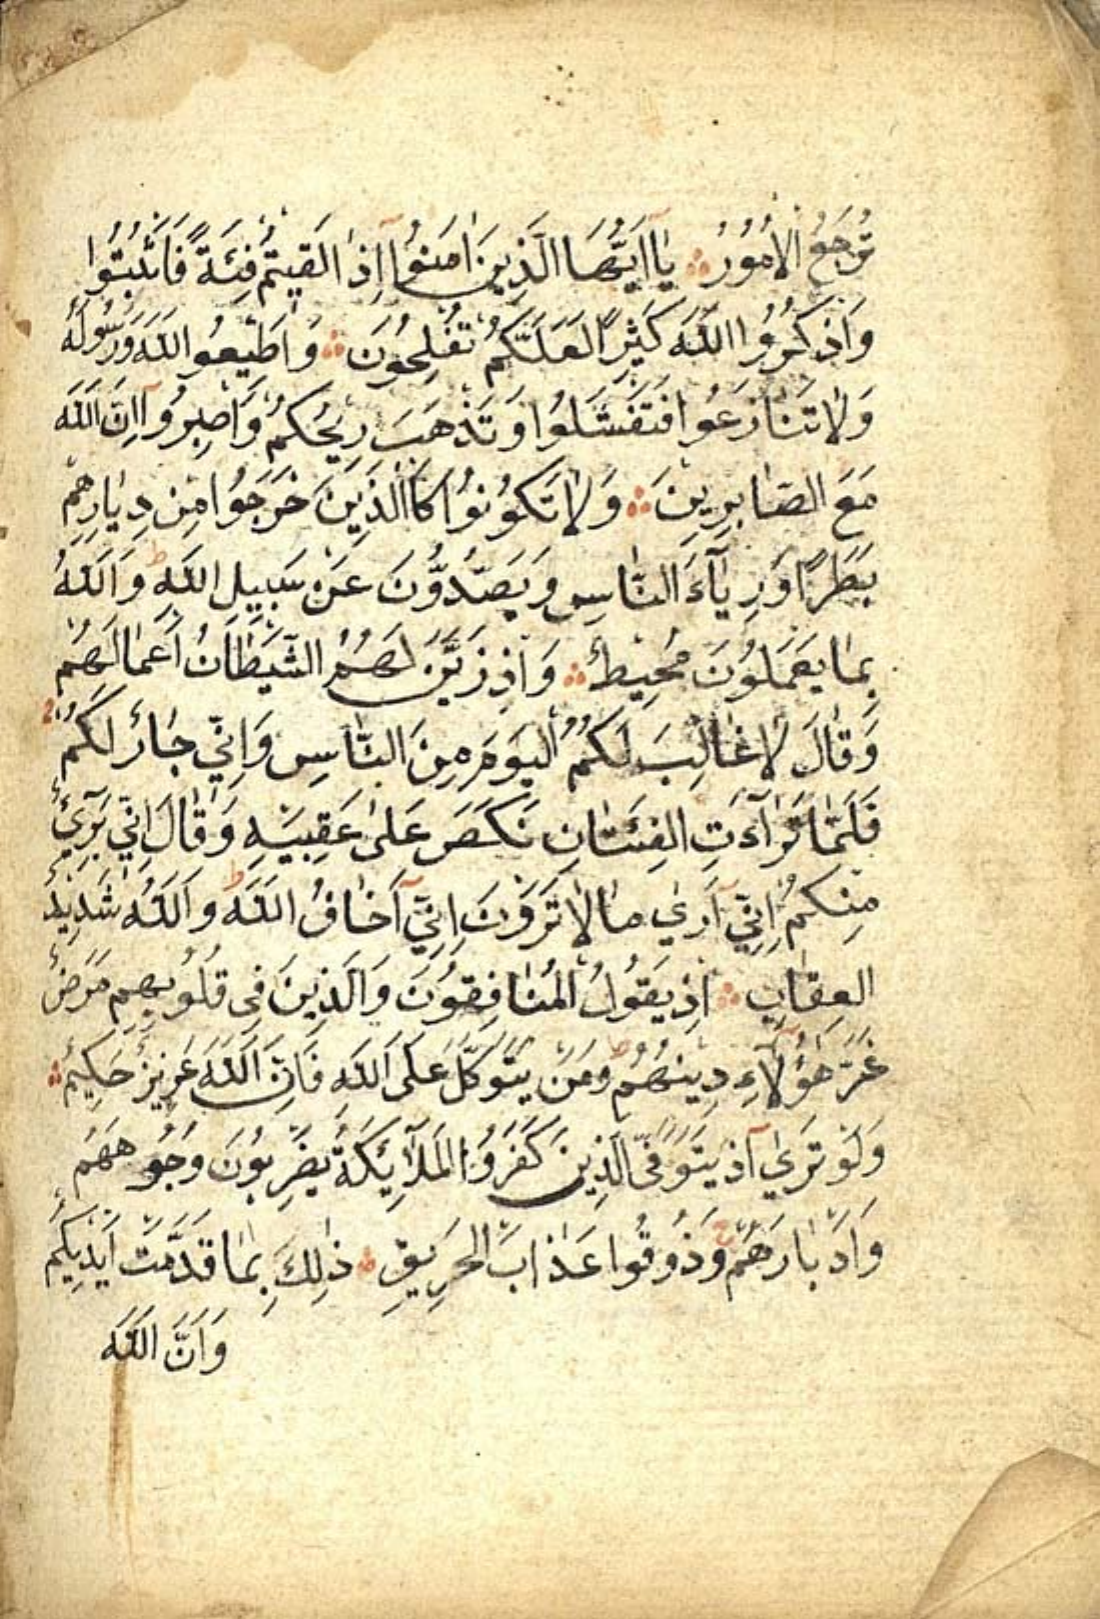 تُرْجَعُ الْاُمُورُ ۞ يَٓا اَيُّهَا الَّذِينَ اٰمَنُٓوا اِذَا لَقِيتُمْ فِئَةً فَاثْبُتُوا
وَاذْكُرُوا اللّٰهَ كَثِيرًا لَعَلَّكُمْ تُفْلِحُونَ ۞ وَاَطِيعُوا اللّٰهَ وَرَسُولَهُ
وَلَا تَنَازَعُوا فَتَفْشَلُوا وَتَذْهَبَ رِيحُكُمْ وَاصْبِرُوٓا اِنَّ اللّٰهَ
مَعَ الصَّابِرِينَ ۞ وَلَا تَكُونُوا كَاالَّذِينَ خَرَجُوا مِنْ دِيَارِهِمْ
بَطَرًا وَرِيَآءَ النَّاسِ وَيَصُدُّونَ عَنْ سَبِيلِ اللّٰهِ ط وَاللّٰهُ
بِمَا يَعْمَلُونَ مُحِيطٌ ۞ وَاِذْ زَيَّنَ لَهُمُ الشَّيْطَانُ اَعْمَالَهُمْ
وَقَالَ لَا غَالِبَ لَكُمُ الْيَوْمَ مِنَ النَّاسِ وَاِنِّي جَارٌ لَكُمْ
فَلَمَّا تَرَآءَتِ الْفِئَتَانِ نَكَصَ عَلٰى عَقِبَيْهِ وَقَالَ اِنِّي بَرِٓيءٌ
مِنْكُمْ اِنِّٓي اَرٰي مَا لَا تَرَوْنَ اِنِّٓي اَخَافُ اللّٰهَ ط وَاللّٰهُ شَدِيدُ
الْعِقَابِ ۞ اِذْ يَقُولُ الْمُنَافِقُونَ وَالَّذِينَ فِي قُلُوبِهِمْ مَرَضٌ
غَرَّ هٰٓؤُلَاءِ دِينُهُمْ ط وَمَنْ يَتَوَكَّلْ عَلَى اللّٰهِ فَاِنَّ اللّٰهَ عَزِيزٌ حَكِيمٌ ۞
وَلَوْ تَرٰٓي اِذْ يَتَوَفَّى الَّذِينَ كَفَرُوا الْمَلٰٓائِكَةُ يَضْرِبُونَ وُجُوهَهُمْ
وَاَدْبَارَهُمْ ج وَذُوقُوا عَذَابَ الْحَرِيقِ ۞ ذٰلِكَ بِمَا قَدَّمَتْ اَيْدِيكُمْ
وَاَنَّ اللّٰهَ